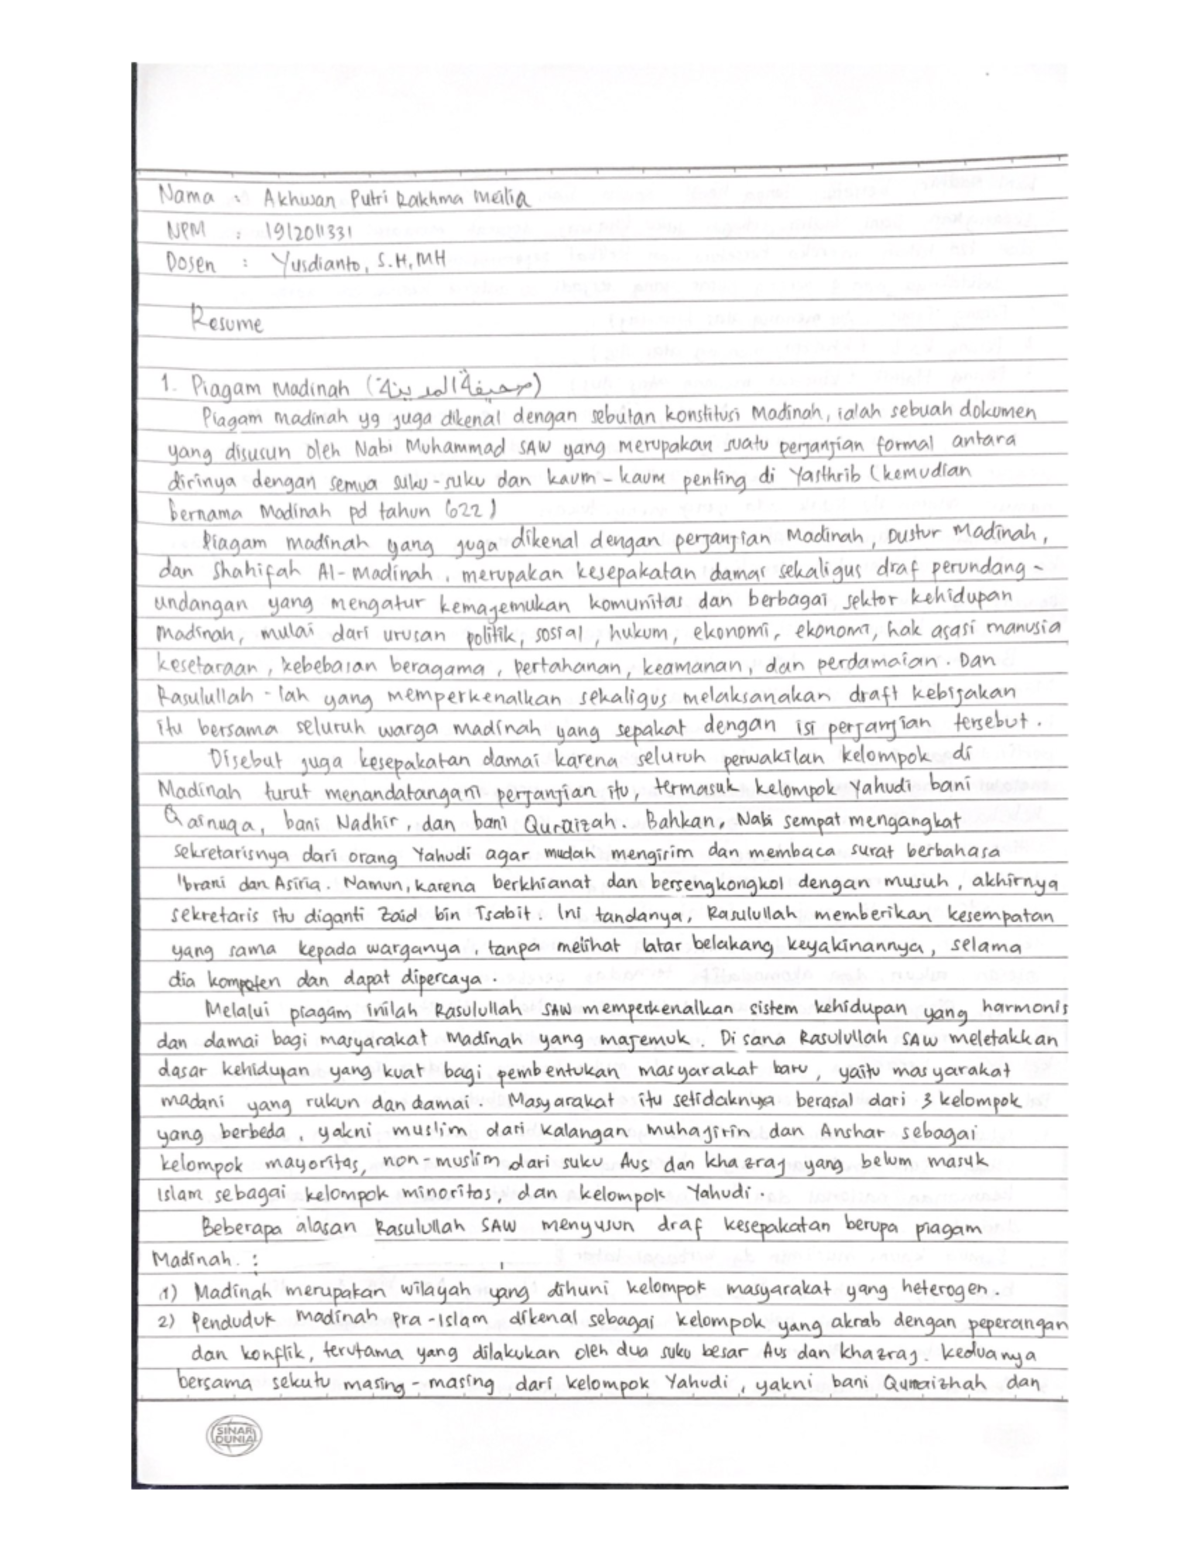 Nama : Akhwan Putri Rakhma Meilia
NPM : 1912011331
Dosen : Yusdianto, S.H, MH
Resume
1. Piagam Madinah (صحيفة المدينة)
Piagam madinah yg juga dikenal dengan sebutan konstitusi Madinah, ialah sebuah dokumen
yang disusun oleh Nabi Muhammad SAW yang merupakan suatu perjanjian formal antara
dirinya dengan semua suku-suku dan kaum-kaum penting di Yasthrib (kemudian
bernama Madinah pd tahun 622)
Piagam madinah yang juga dikenal dengan perjanjian Madinah, Dustur Madinah,
dan Shahifah Al-Madinah, merupakan kesepakatan damai sekaligus draf perundang-
undangan yang mengatur kemajemukan komunitas dan berbagai sektor kehidupan
Madinah, mulai dari urusan politik, sosial, hukum, ekonomi, ekonomi, hak asasi manusia
kesetaraan, kebebasan beragama, pertahanan, keamanan, dan perdamaian. Dan
Rasulullah-lah yang memperkenalkan sekaligus melaksanakan draft kebijakan
itu bersama seluruh warga madinah yang sepakat dengan isi perjanjian tersebut.
Disebut juga kesepakatan damai karena seluruh perwakilan kelompok di
Madinah turut menandatangani perjanjian itu, termasuk kelompok Yahudi bani
Qainuqa, bani Nadhir, dan bani Quraizah. Bahkan, Nabi sempat mengangkat
sekretarisnya dari orang Yahudi agar mudah mengirim dan membaca surat berbahasa
Ibrani dan Asiria. Namun, karena berkhianat dan bersengkongkol dengan musuh, akhirnya
sekretaris itu diganti Zaid bin Tsabit. Ini tandanya, Rasulullah memberikan kesempatan
yang sama kepada warganya, tanpa melihat latar belakang keyakinannya, selama
dia kompoten dan dapat dipercaya.
Melalui piagam inilah Rasulullah SAW memperkenalkan sistem kehidupan yang harmonis
dan damai bagi masyarakat Madinah yang majemuk. Di sana Rasulullah SAW meletakkan
dasar kehidupan yang kuat bagi pembentukan masyarakat baru, yaitu masyarakat
madani yang rukun dan damai. Masyarakat itu setidaknya berasal dari 3 kelompok
yang berbeda, yakni muslim dari kalangan muhajirin dan Anshar sebagai
kelompok mayoritas, non-muslim dari suku Aus dan khazraj yang belum masuk
Islam sebagai kelompok minoritas, dan kelompok Yahudi.
Beberapa alasan Rasulullah SAW menyusun draf kesepakatan berupa piagam
Madinah. :
1) Madinah merupakan wilayah yang dihuni kelompok masyarakat yang heterogen.
2) Penduduk madinah pra-Islam dikenal sebagai kelompok yang akrab dengan peperangan
dan konflik, terutama yang dilakukan oleh dua suku besar Aus dan khazraj. Keduanya
bersama sekutu masing-masing dari kelompok Yahudi, yakni bani Quraizhah dan
SINAR
DUNIA